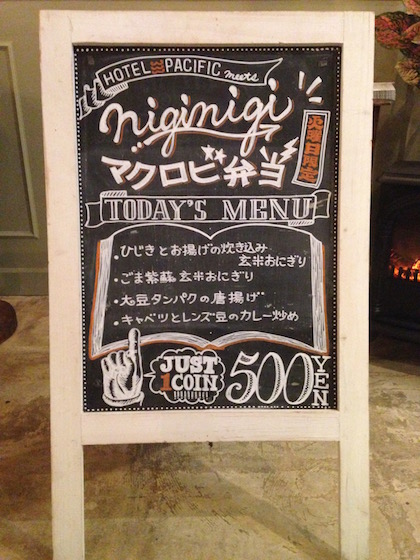 HOTEL PACIFIC meets
niginigi
マクロビ弁当
火曜日限定
TODAY'S MENU
・ひじきとお揚げの炊き込み
玄米おにぎり
・ごま紫蘇玄米おにぎり
・大豆タンパクの唐揚げ
・キャベツとレンズ豆のカレー炒め
JUST
1COIN
500YEN